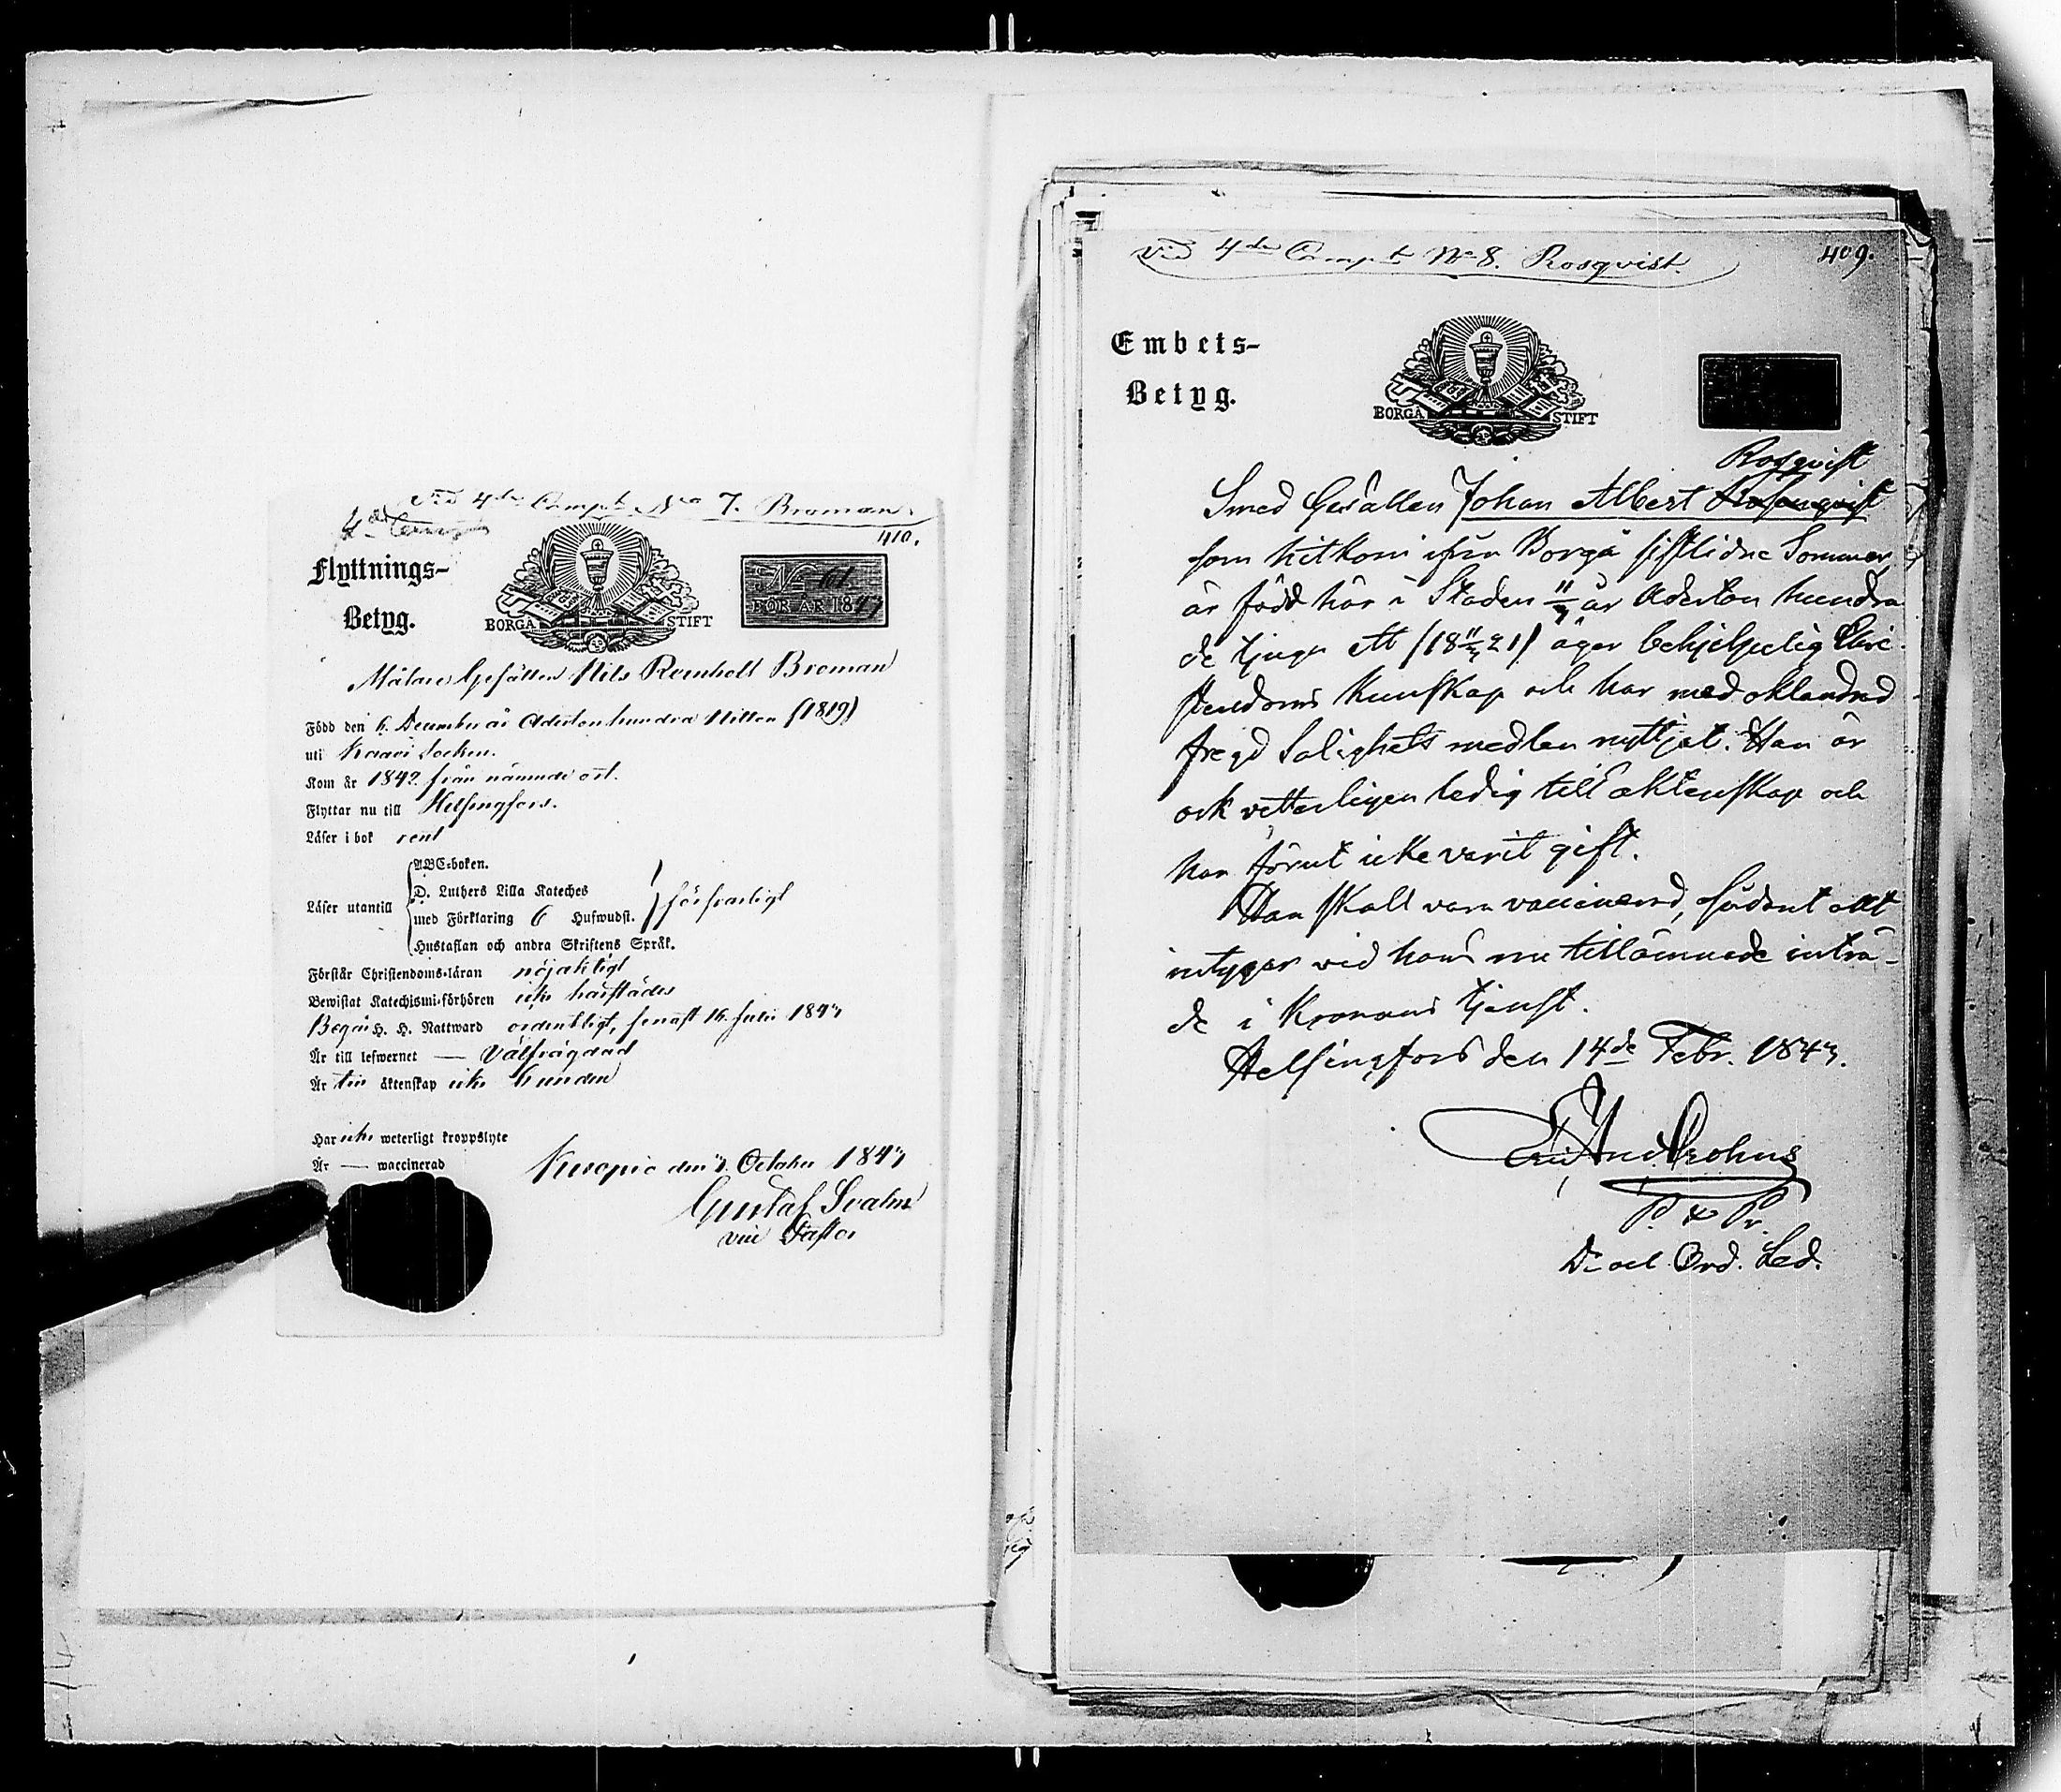 Vid 4de Comp:t No 7. Broman.
410.
Flyttnings-
Betyg.
BORGÅ STIFT
No 61
FÖR ÅR 1843
Målare Gesällen Nils Reinholt Broman
Född den 6. December år Adertonhundra Nitton (1819)
uti Kaavi Socken.
Kom år 1842 från nämnde ort.
Flyttar nu till Helsingfors.
Läser i bok rent
Läser utantill
ABC-boken.
D. Luthers Lilla Kateches
med Förklaring 6 Hufwudst.
Hustaflan och andra Skriftens Språk.
försvarligt
Förstår Christendoms-läran nöjaktigt
Bewistat Katechismi-förhören icke härstädes
Begår H. H. Nattward ordentligt, senast 16. Julii 1843
Är till lefwernet — Välfrägdad
Är till äktenskap icke bunden
Har icke weterligt kroppslyte
Är — waccinerad
Kuopio den 3. October 1843
Gustaf Svahn
vice Pastor
Vid 4de Comp:t No 8. Rosqvist.
409.
Embets-
Betyg.
BORGÅ STIFT
Rosqvist
Smed Gesällen Johan Albert
som hitkom ifrån Borgå sistlidne Sommar,
är född här i Staden 11/3 år Aderton hundra
de tjugu ett (18 11/3 21) äger behjelpelig Chri-
stendoms kunskap och har med oklandrad
fregd Salighets medlen nyttjat. Han är
ock vetterligen ledig till äktenskap och
har förut icke varit gift.
Han skall vara vaccinerad, sådant allt
intygar vid hans nu tillämnade inträ-
de i Kronans tjenst.
Helsingfors den 14de Febr. 1843.
And Crohns
P. & Pr.
L. och Ord. Led.